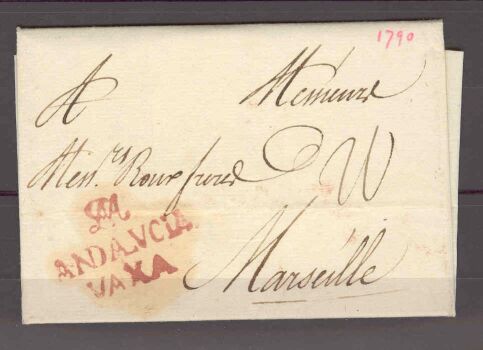 1790
A Messieurs
Mess.rs Roux freres
M
ANDALVCIA
VAXA
Marseille